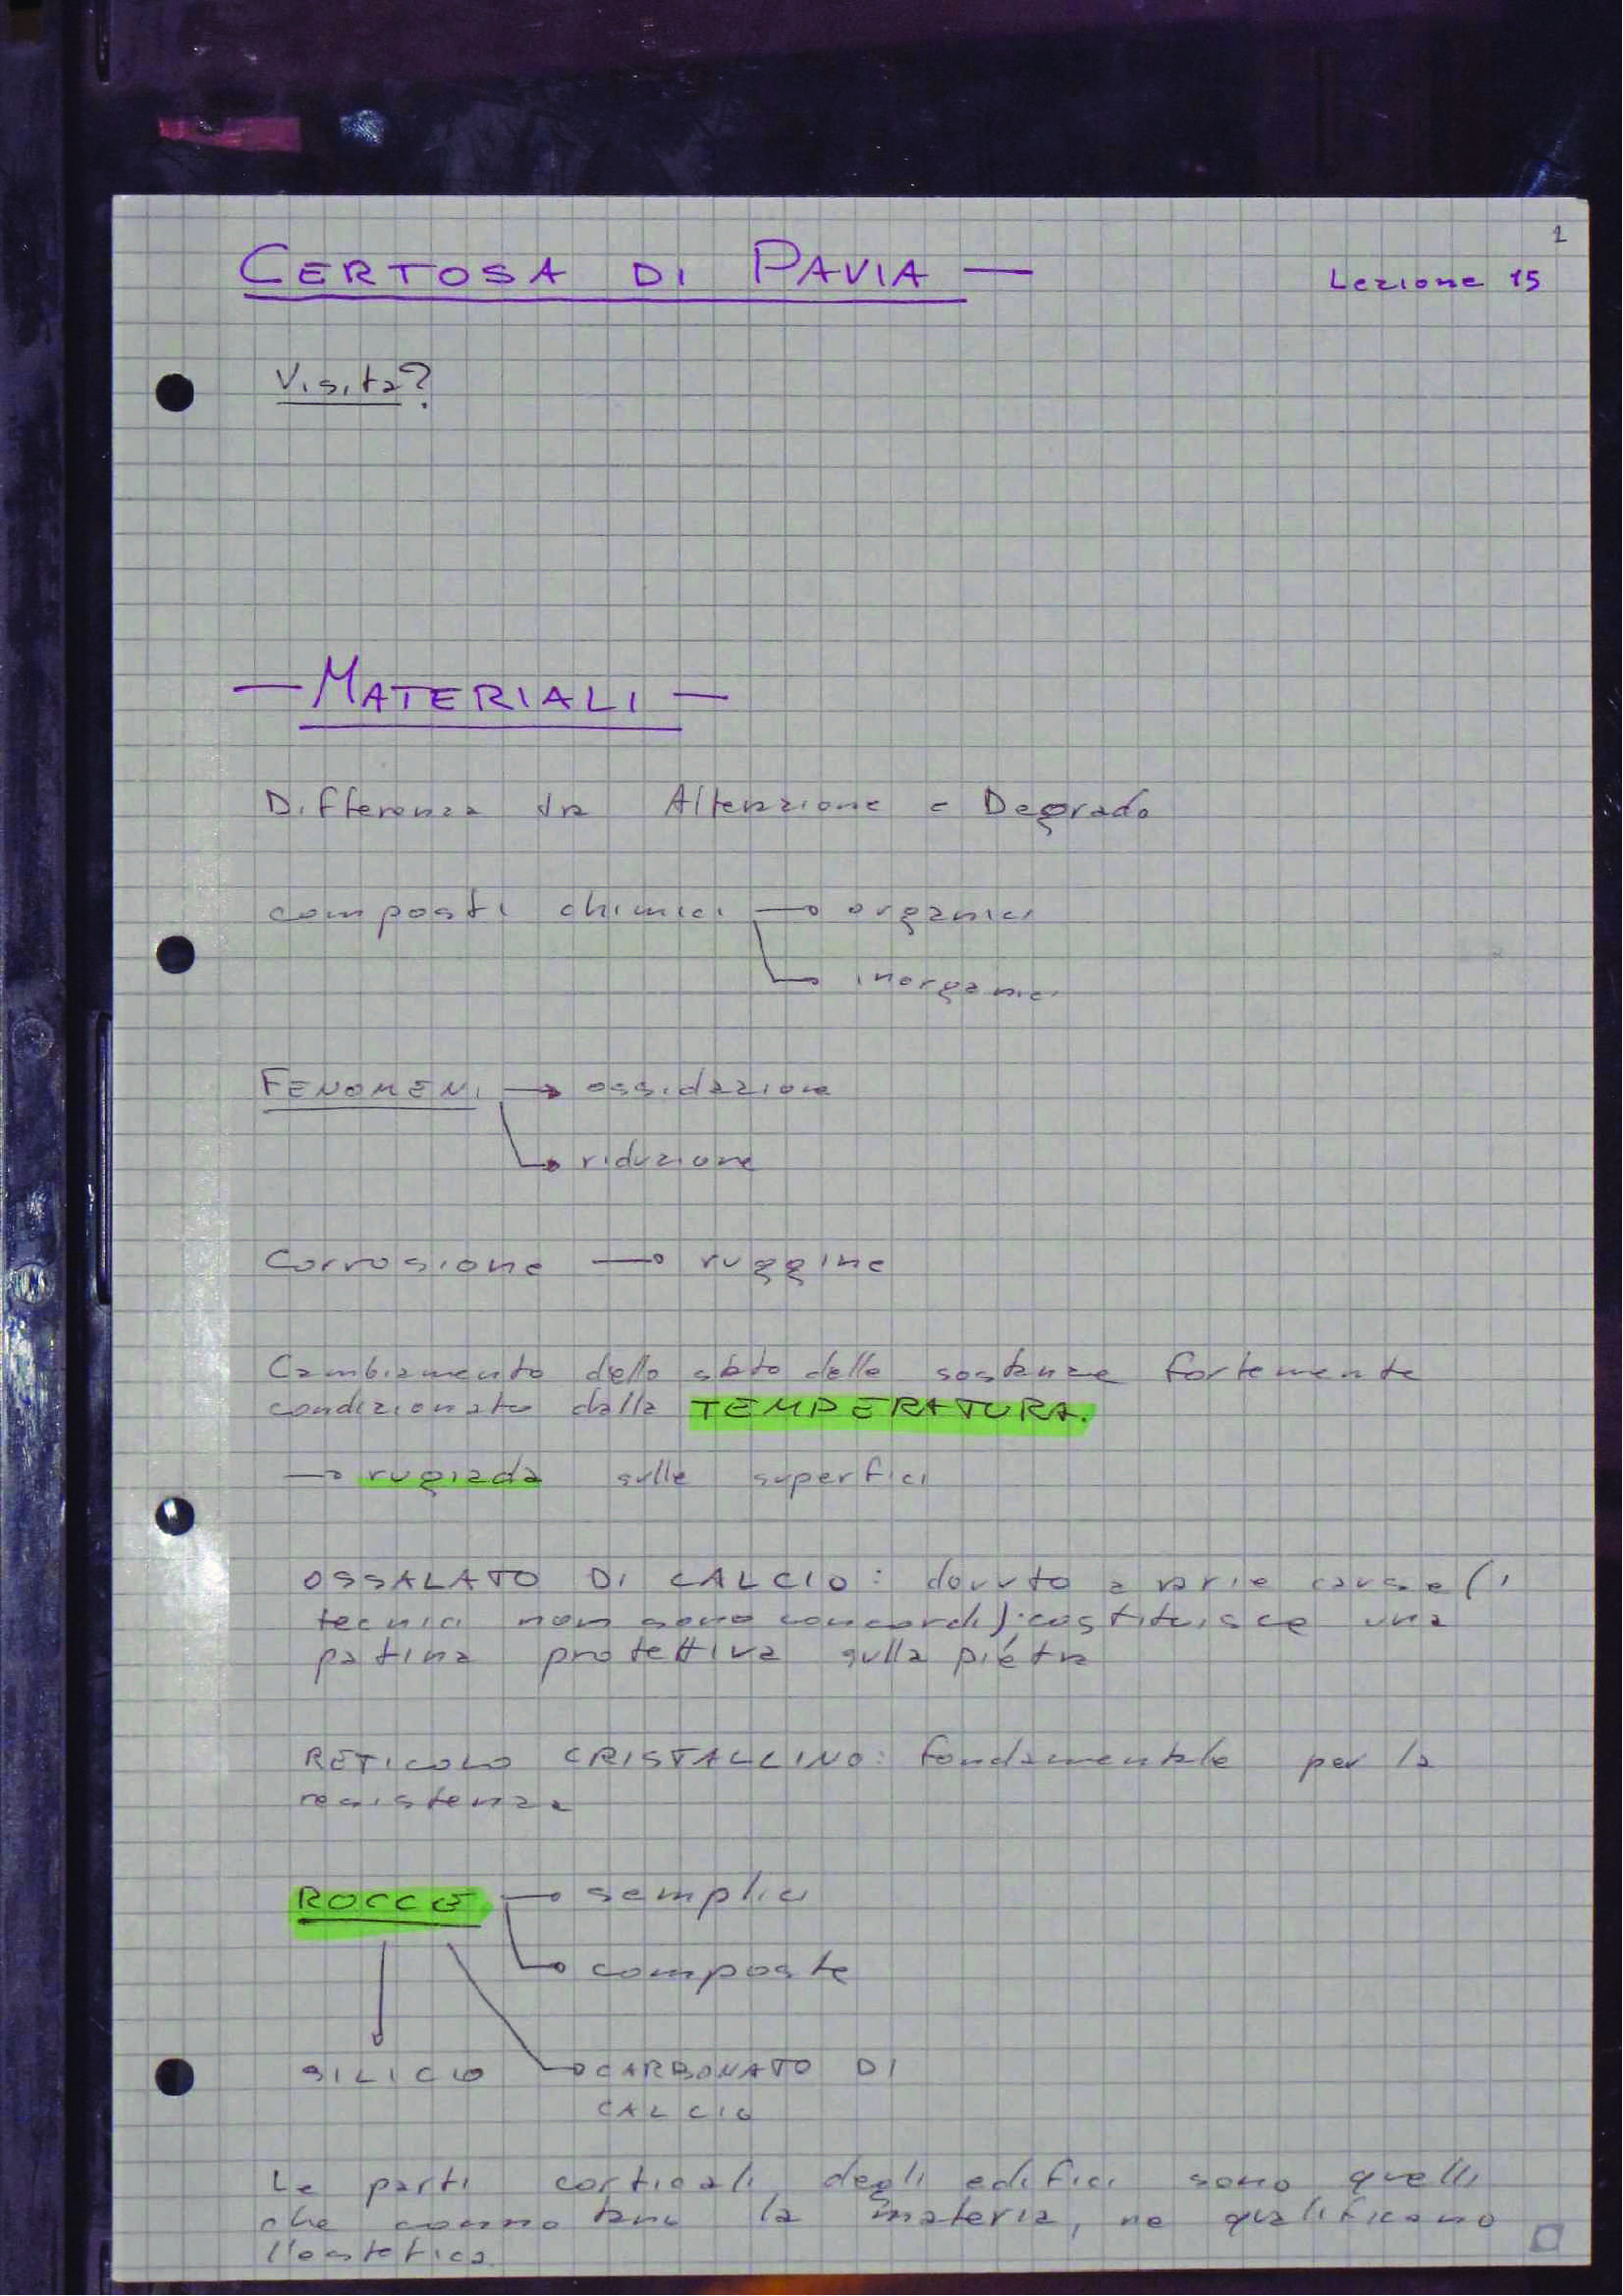 1
CERTOSA DI PAVIA —
Lezione 15
Visita?
— MATERIALI —
Differenza tra Alterazione e Degrado
composti chimici → organici
→ inorganici
FENOMENI → ossidazione
→ riduzione
Corrosione → ruggine
Cambiamento dello stato delle sostanze fortemente
condizionato dalla TEMPERATURA.
→ rugiada sulle superfici
OSSALATO DI CALCIO: dovuto a varie cause (i
tecnici non sono concordi): costituisce una
patina protettiva sulla pietra
RETICOLO CRISTALLINO: fondamentale per la
resistenza
ROCCE → semplici
→ composte
SILICIO → CARBONATO DI
CALCIO
Le parti corticali degli edifici sono quelli
che connotano la materia, ne qualificano
l'estetica.